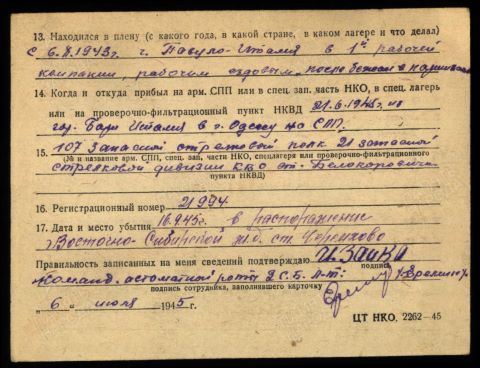 13. Находился в плену (с какого года, в какой стране, в каком лагере и что делал)
с 6.II.1943г. г. Павуло-Италия в 1й рабочей
компании, рабочим ездовым,
14. Когда и откуда прибыл на арм. СПП или в спец. зап. часть НКО, в спец. лагерь
или на проверочно-фильтрационный пункт НКВД 21.6.1945г. из
гор. Бари Италия в г. Одессу на СПП.
15. 107 Запасной стрелковый полк 21 запасной
(№ и название арм. СПП, спец. зап. части НКО, спецлагеря или проверочно-фильтрационного
стрелковой дивизии КВО ст. Белокоровичи
пункта НКВД)
16. Регистрационный номер 21994
17. Дата и место убытия в распоряжение
Восточно-Сибирской ж.д. ст. Черемхово
Правильность записанных на меня сведений подтверждаю Заика
подпись
Команд. автоматной роты
подпись сотрудника, заполнявшего карточку
„ 6 “ июля 1945 г.
ЦТ НКО, 2262—45